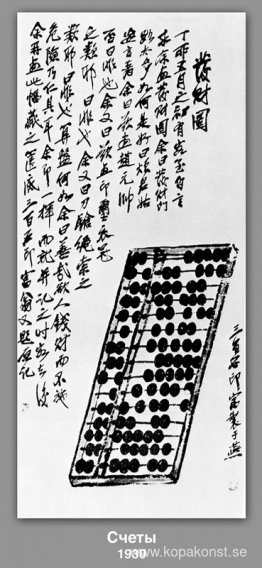 發財圖
丁卯五月之初有客至自言
求余畫發財圖余曰發財門
路太多如何是好曰煩君姑
妄言者余曰欲畫趙元帥
否曰非也余又曰欲畫印璽衣冠
之類耶曰非也余又曰刀鎗繩索之
類耶曰非也算盤何如余曰善哉欲人錢財而不施
危險乃仁具耳余即一揮而就并記之時客去後
余再畫此幅藏之篋底三百石印富翁又題原記
三百石印富翁製于燕
Счеты
1930
www.kopakonst.se